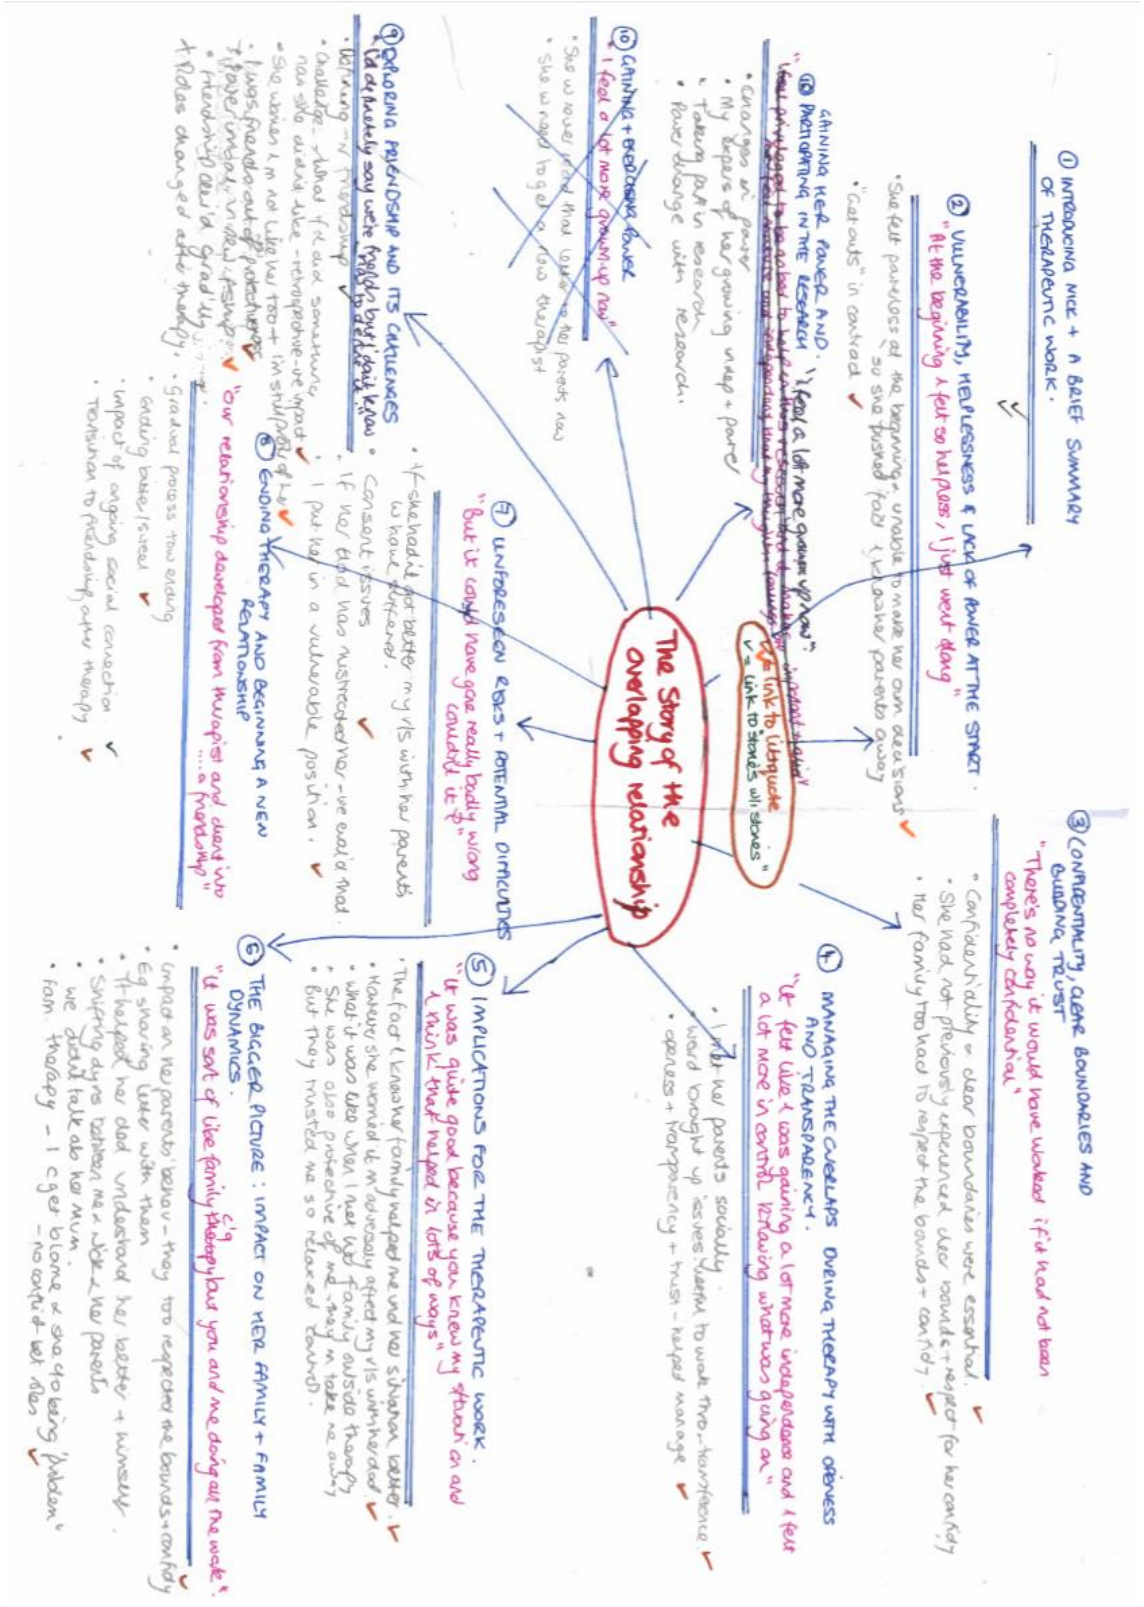 The Story of the
overlapping relationship
✓ = link to lit + quote
✓ = link to stories w/i stories"
① INTRODUCING NICK + A BRIEF SUMMARY
OF THERAPEUTIC WORK.
② VULNERABILITY, HELPLESSNESS & LACK OF POWER AT THE START.
"At the beginning I felt so helpless, I just went along"
• She felt powerless at the beginning unable to make her own decisions
so she pushed food & her parents away
• "Get outs" in contract
③ CONFIDENTIALITY, CLEAR BOUNDARIES AND
BUILDING TRUST
"There's no way it would have worked if it had not been
completely confidential"
• Confidentiality clear boundaries were essential.
• She had not previously experienced clear bounds + respect for her confidy
• Her family too had to respect the bounds + confidy.
④ MANAGING THE OVERLAPS DURING THERAPY WITH OPENNESS
AND TRANSPARENCY.
"It felt like I was gaining a lot more independence and I felt
a lot more in control knowing what was going on"
• I met her parents socially.
• weird brought up issues useful to work thro-transference.
• openness + transparency + trust - helped manage
⑤ IMPLICATIONS FOR THE THERAPEUTIC WORK.
"It was quite good because you knew my situation and
I think that helped in lots of ways"
• The fact I knew her family helped me und her situation better.
• However she worried it'm adversely affect my r/s with her dad
• What it was like when I met her family outside therapy
• She was also protective of me - they m take me away
• But they trusted me so relaxed control.
⑥ THE BIGGER PICTURE: IMPACT ON HER FAMILY + FAMILY
DYNAMICS.
"It was sort of like family therapy but you and me doing all the work".
• Impact on her parents behav - they too respected the bounds + confidy
• Eg sharing letter with them
• It helped her dad understand her better + himself.
• Shifting dyns between me + Nick + her parents
• we didn't talk ab her mum.
• Fam. therapy - I c get blame & she c/o being 'problem'
⑦ UNFORESEEN RISKS + POTENTIAL DIFFICULTIES
"But it could have gone really badly wrong
couldn't it?"
• If she hadn't got better my r/s with her parents
w have suffered.
• Consent issues
• If her dad has mistreated her -
• I put her in a vulnerable position.
⑧ ENDING THERAPY AND BEGINNING A NEW
RELATIONSHIP
"Our relationship developed from therapist and client into
....a friendship"
• Gradual process tow ending
• Ending bitter/sweet
• Impact of ongoing social connection
• Transition to friendship after therapy
⑨ EXPLORING FRIENDSHIP AND ITS CHALLENGES
"I'd definitely say we're friends but I don't know
how to define it"
• Defining - friendship
• Challenge - what if I did something
now she didn't like - retrospective -ve impact
• She worries I'm not like her too + I'm
• I was friends out of protectiveness
• Power imbal in new r/ship
• Friendship dev'd grad'lly
+ Roles changed after therapy.
⑩ GAINING + EXERCISING POWER
"I feel a lot more grown-up now"
• She w never read that letter to her parents now
• She w need to get a new therapist
GAINING HER POWER AND
⑩ PARTICIPATING IN THE RESEARCH. "I feel a lot more grown up now".
• Changes in power
• My expers of her growing indep + power
• Taking part in research
• Power change with research.